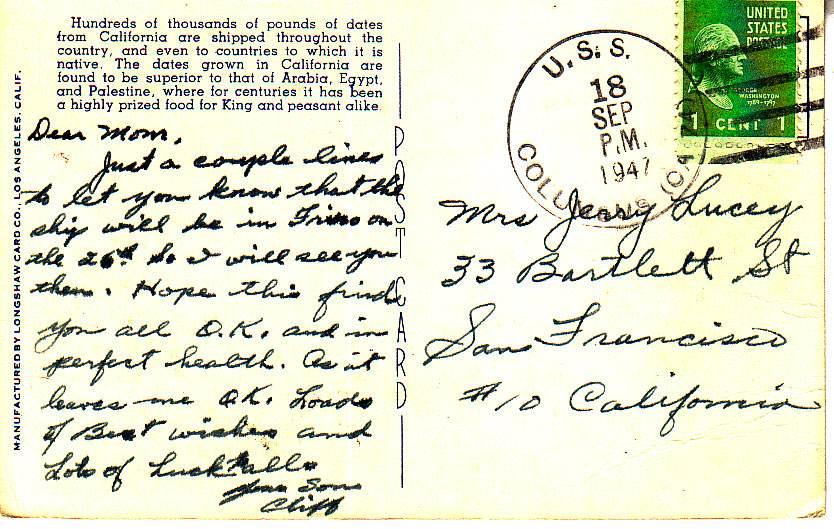 Hundreds of thousands of pounds of dates
from California are shipped throughout the
country, and even to countries to which it is
native. The dates grown in California are
found to be superior to that of Arabia, Egypt,
and Palestine, where for centuries it has been
a highly prized food for King and peasant alike
MANUFACTURED BY LONGSHAW CARD CO., LOS ANGELES, CALIF.
POST CARD
Dear Mom,
Just a couple lines
to let you know that the
ship will be in Frisco on
the 26th So I will see you
then. Hope this finds
you all O.K. and in
perfect health. As it
leaves me O.K. Loads
of Best wishes and
Lots of Luck to all
Your Son
Cliff
U.S.S.
18
SEP
P.M.
1947
COLUMBUS (CA
UNITED
STATES
POSTAGE
GEORGE
WASHINGTON
1789-1797
1 CENT 1
Mrs Jerry Lucey
33 Bartlett St
San Francisco
#10 California